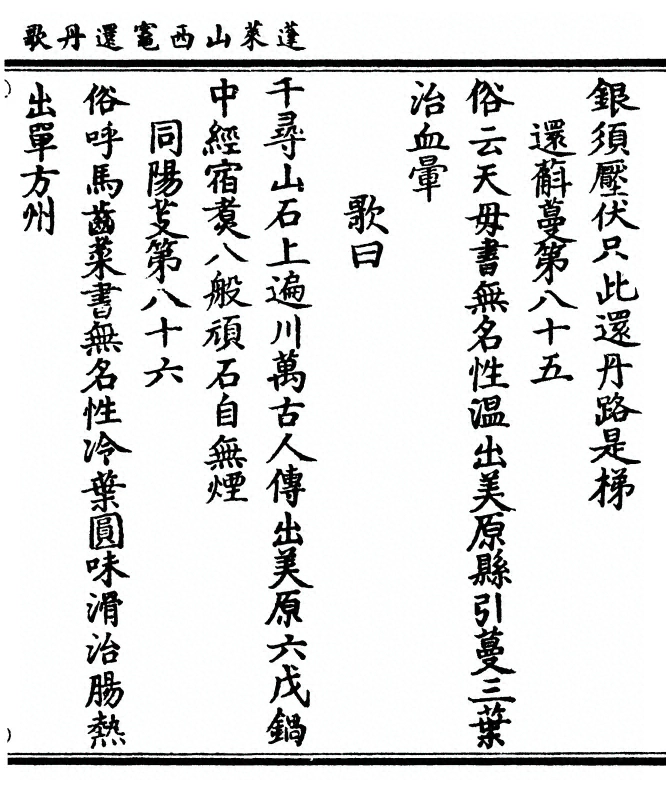 蓬萊山西竈還丹歌
銀須壓伏只此還丹路是梯
還蔛蔓第八十五
俗云天毋書無名性温出美原縣引蔓三葉
治血暈
歌曰
千尋山石上遍川萬古人傳出美原六戊鍋
中經宿煑八般頑石自無煙
同陽芰第八十六
俗呼馬齒菜書無名性冷葉圓味滑治腸熱
出單方州